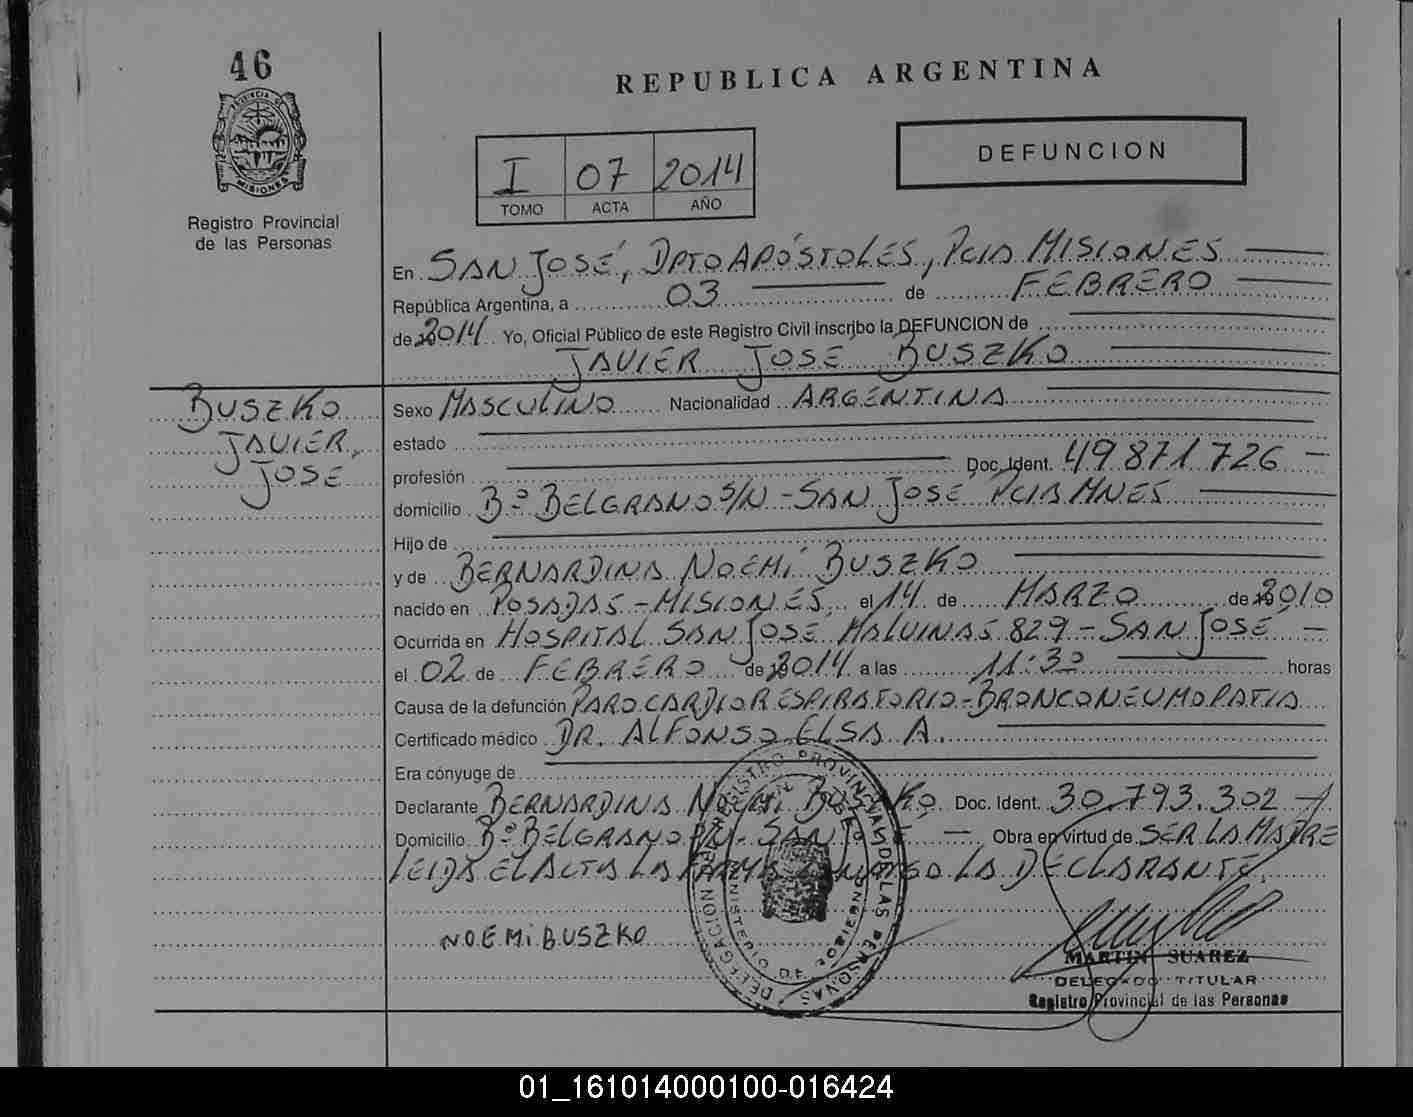 46
REPUBLICA ARGENTINA
PROVINCIA DE
MISIONES
Registro Provincial
de las Personas
I 07 2014
TOMO ACTA AÑO
DEFUNCION
En SAN JOSÉ, DPTO APÓSTOLES, PCIA MISIONES
República Argentina, a 03 de FEBRERO
de 2014 Yo, Oficial Público de este Registro Civil inscribo la DEFUNCION de
JAVIER JOSE BUSZKO
BUSZKO
JAVIER,
JOSE
Sexo MASCULINO Nacionalidad ARGENTINA
estado
profesión Doc. Ident. 49 871 726
domicilio Bº BELGRANO S/N - SAN JOSÉ, PCIA MNES
Hijo de
y de BERNARDINA NOEMÍ BUSZKO
nacido en POSADAS - MISIONES, el 14 de MARZO de 2010
Ocurrida en HOSPITAL SAN JOSE MALVINAS 829 - SAN JOSÉ
el 02 de FEBRERO de 2014 a las 11:30 horas
Causa de la defunción PARO CARDIORESPIRATORIO - BRONCONEUMOPATIA
Certificado médico DR. ALFONSO ELSA A.
Era cónyuge de
Declarante BERNARDINA NOEMI BUSZKO Doc. Ident. 30.793.302
Domicilio Bº BELGRANO S/N - SAN Obra en virtud de SER LA MADRE
LEIDA EL ACTA LA FIRMA CONMIGO LA DECLARANTE.
NOEMI BUSZKO
REGISTRO PROVINCIAL DE LAS PERSONAS
DELEGACION
MINISTERIO DE GOBIERNO
MARTIN SUAREZ
DELEGADO TITULAR
Registro Provincial de las Personas
01_161014000100-016424